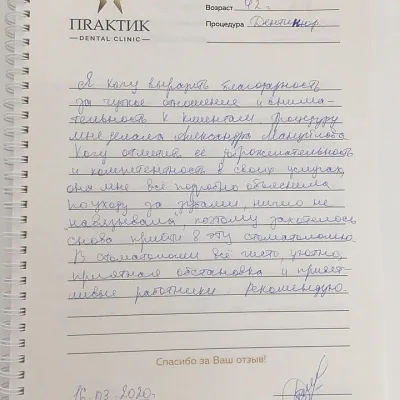 ПRAKTИК
— DENTAL CLINIC —
Возраст 42 г.
Процедура Дентикюр
Я хочу выразить благодарность
за чуткое отношение и внима-
тельность к клиентам. Процедуру
мне делала Александра Мануйлова.
Хочу отметить её доброжелательность
и компетентность в своих услугах,
она мне всё подробно объяснила
по уходу за зубами, ничего не
"навязывала", поэтому захотелось
снова прийти в эту стоматологию.
В стоматологии всё чисто, уютно,
приятная обстановка и привет-
ливые работники. Рекомендую.
Спасибо за Ваш отзыв!
16.03.2020г.